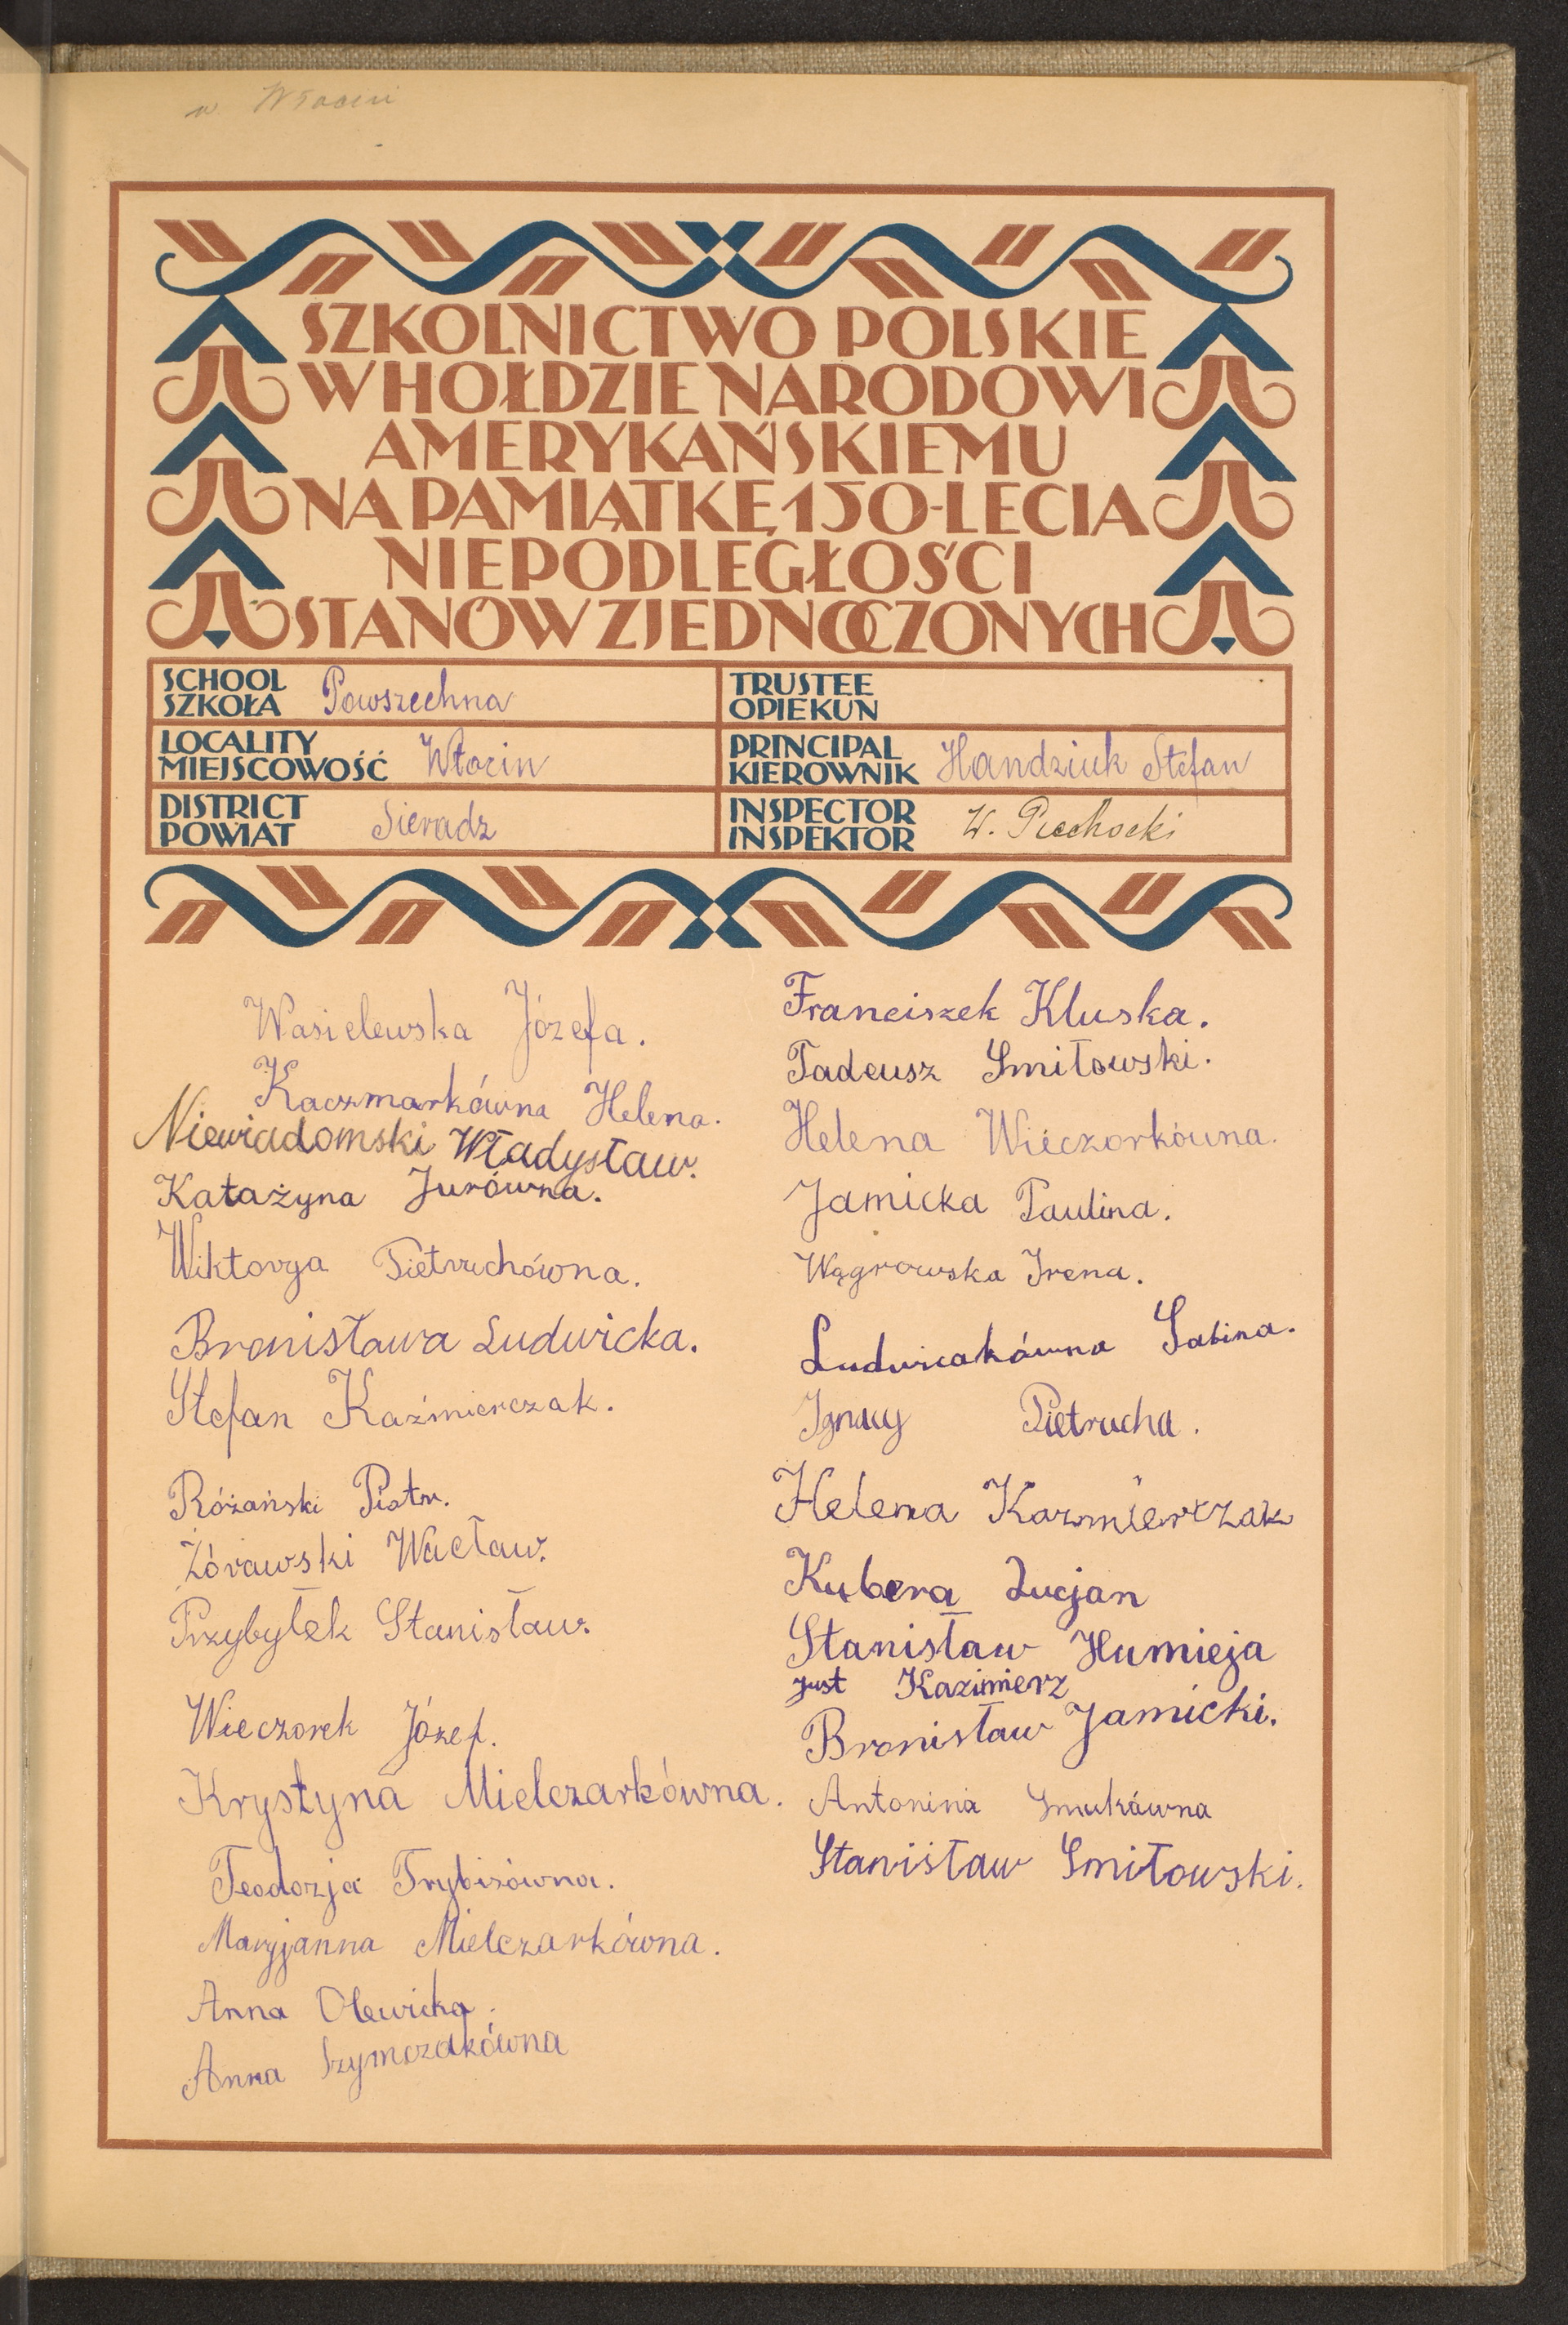 w
SZKOLNICTWO POLSKIE
W HOŁDZIE NARODOWI
AMERYKAŃSKIEMU
NA PAMIĄTKĘ 150-LECIA
NIEPODLEGŁOŚCI
STANÓW ZJEDNOCZONYCH
SCHOOL
SZKOŁA Powszechna
TRUSTEE
OPIEKUN
LOCALITY
MIEJSCOWOŚĆ Włocin
PRINCIPAL
KIEROWNIK Handziuk Stefan
DISTRICT
POWIAT Sieradz
INSPECTOR
INSPEKTOR W. Piechocki
Wasielewska Józefa.
Kaczmarkówna Helena.
Niewiadomski Władysław.
Katażyna Jurówna.
Wiktorya Pietruchówna.
Bronisława Ludwicka.
Stefan Kaźmierczak.
Różański Piotr.
Żórawski Wacław.
Przybyłek Stanisław.
Wieczorek Józef.
Krystyna Mielczarkówna.
Teodozja Trybisówna.
Maryjanna Mielczarkówna.
Anna Olewicka.
Anna Szymczakówna
Franciszek Kluska.
Tadeusz Smiłowski.
Helena Wieczorkówna.
Jamicka Paulina.
Wągrowska Irena.
Ludwiczakówna Sabina.
Ignacy Pietrucha.
Helena Kazmierczak
Kubera Lucjan
Stanisław Humieja
Just Kazimierz
Bronisław Jamicki.
Antonina Smukówna
Stanisław Smiłowski.